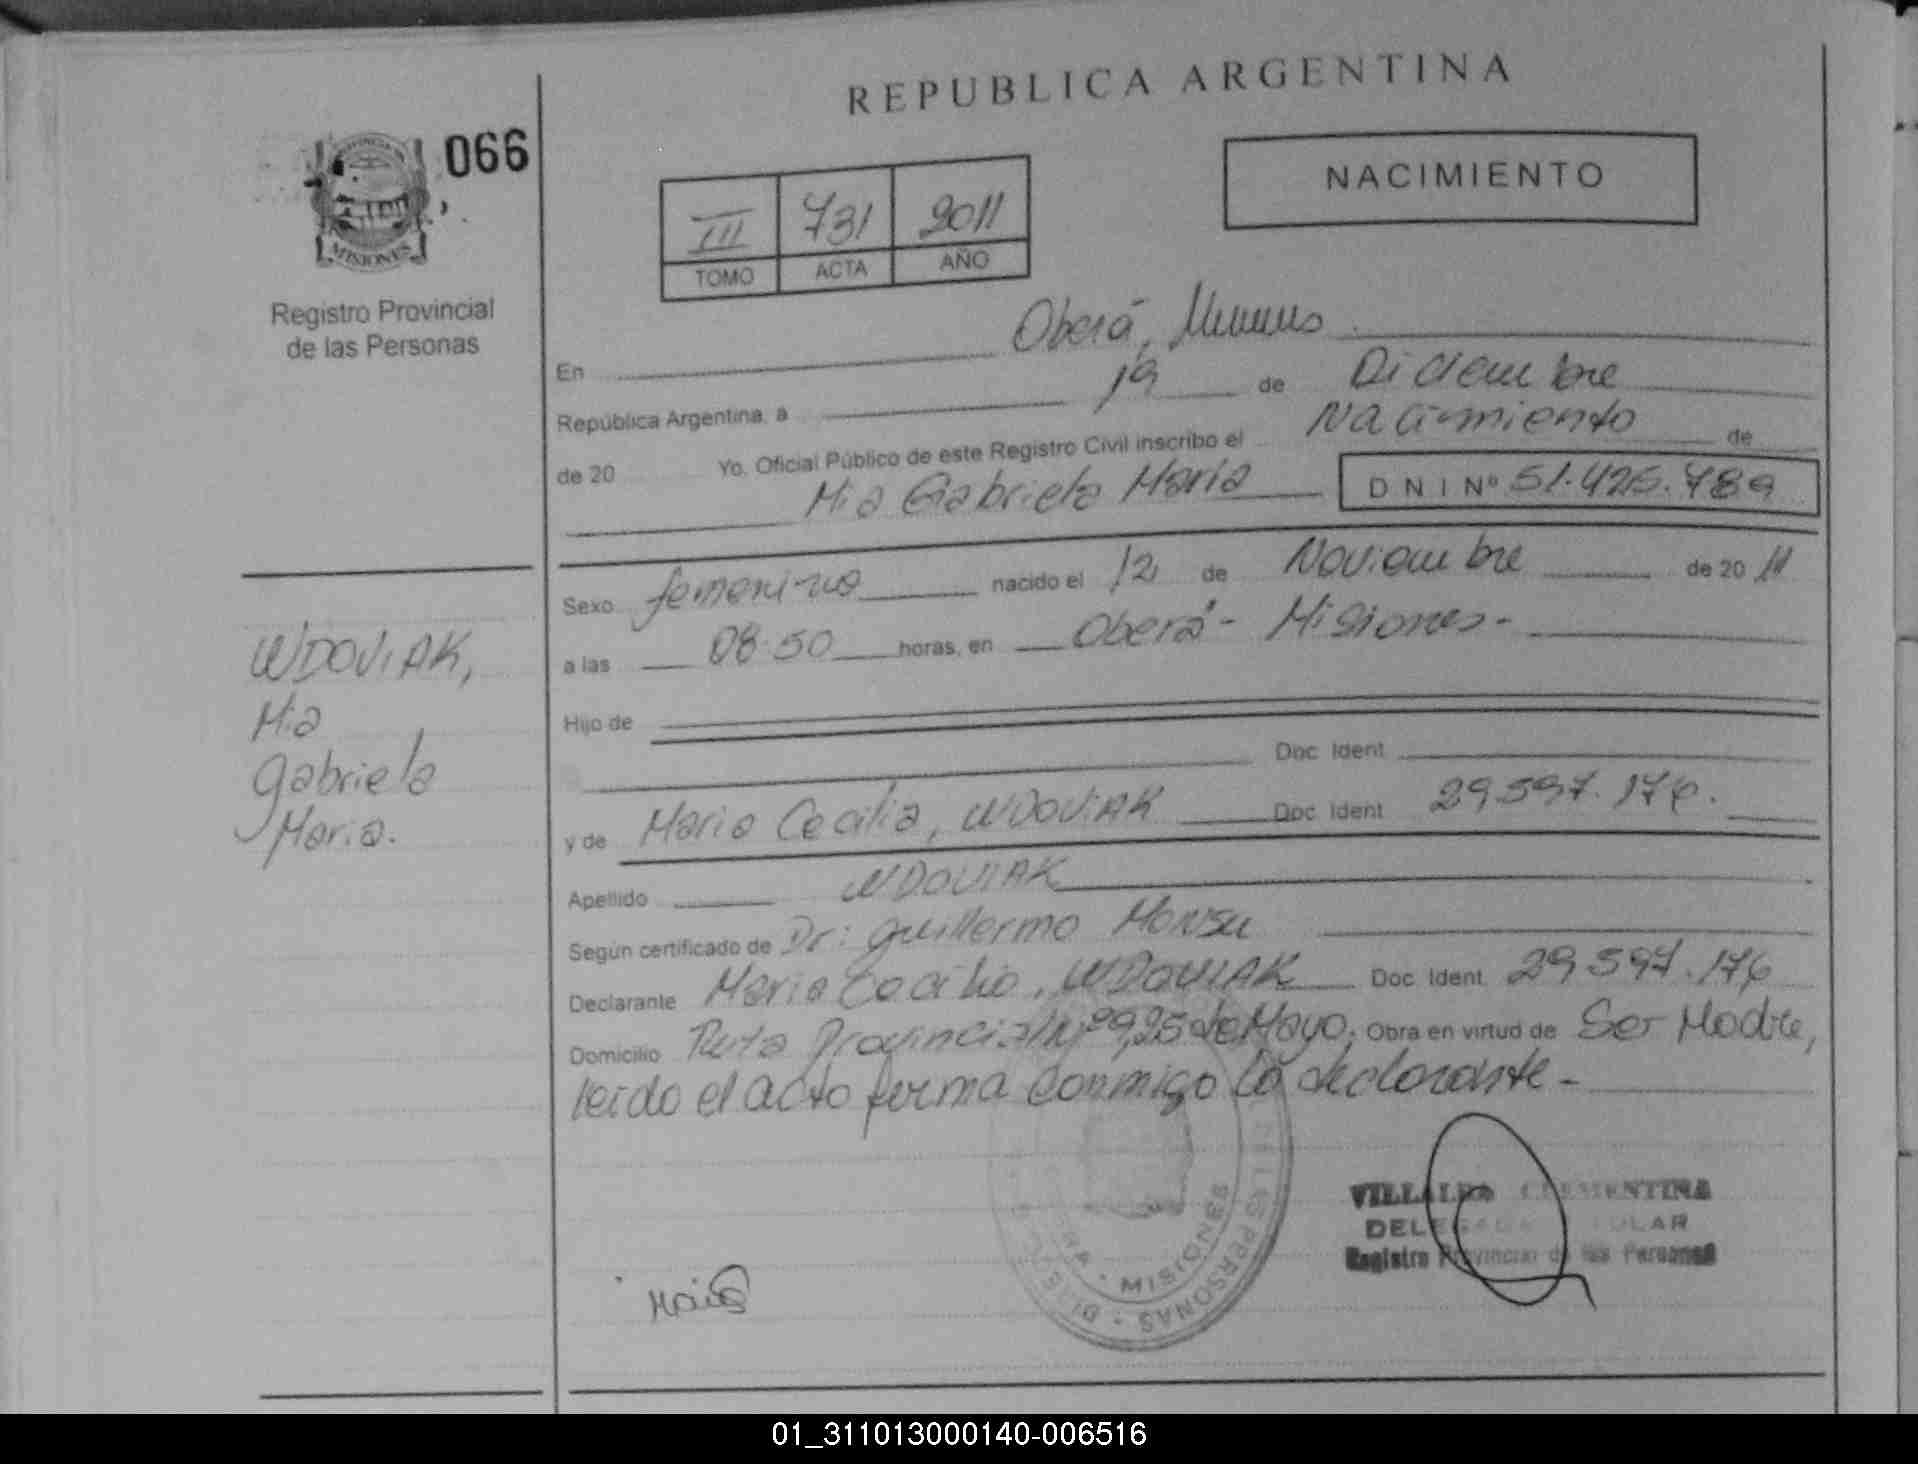 REPUBLICA ARGENTINA
066
NACIMIENTO
III 731 2011
TOMO ACTA AÑO
MISIONES
Registro Provincial
de las Personas
En Oberá, Misiones
República Argentina, a 19 de Diciembre
de 20 Yo, Oficial Público de este Registro Civil inscribo el Nacimiento de
Mia Gabriela Maria DNI Nº 51.425.789
Sexo femenino nacido el 12 de Noviembre de 20 11
a las 08:50 horas, en Oberá - Misiones -
WDOVIAK,
Mia
Gabriela
Maria.
Hijo de
Doc. Ident.
y de Maria Cecilia, WDOVIAK Doc. Ident. 29.597.176.
Apellido WDOVIAK
Según certificado de Dr: Guillermo Monsu
Declarante Maria Cecilia, WDOVIAK Doc. Ident. 29.597.176
Domicilio Ruta Provincial Nº 9, 25 de Mayo. Obra en virtud de Ser Madre,
leido el acto firma conmigo la declarante -
VILLALBA CLEMENTINA
DELEGADA TITULAR
Registro Provincial de las Personas
MISIONES
PERSONAS
Maria
01_311013000140-006516